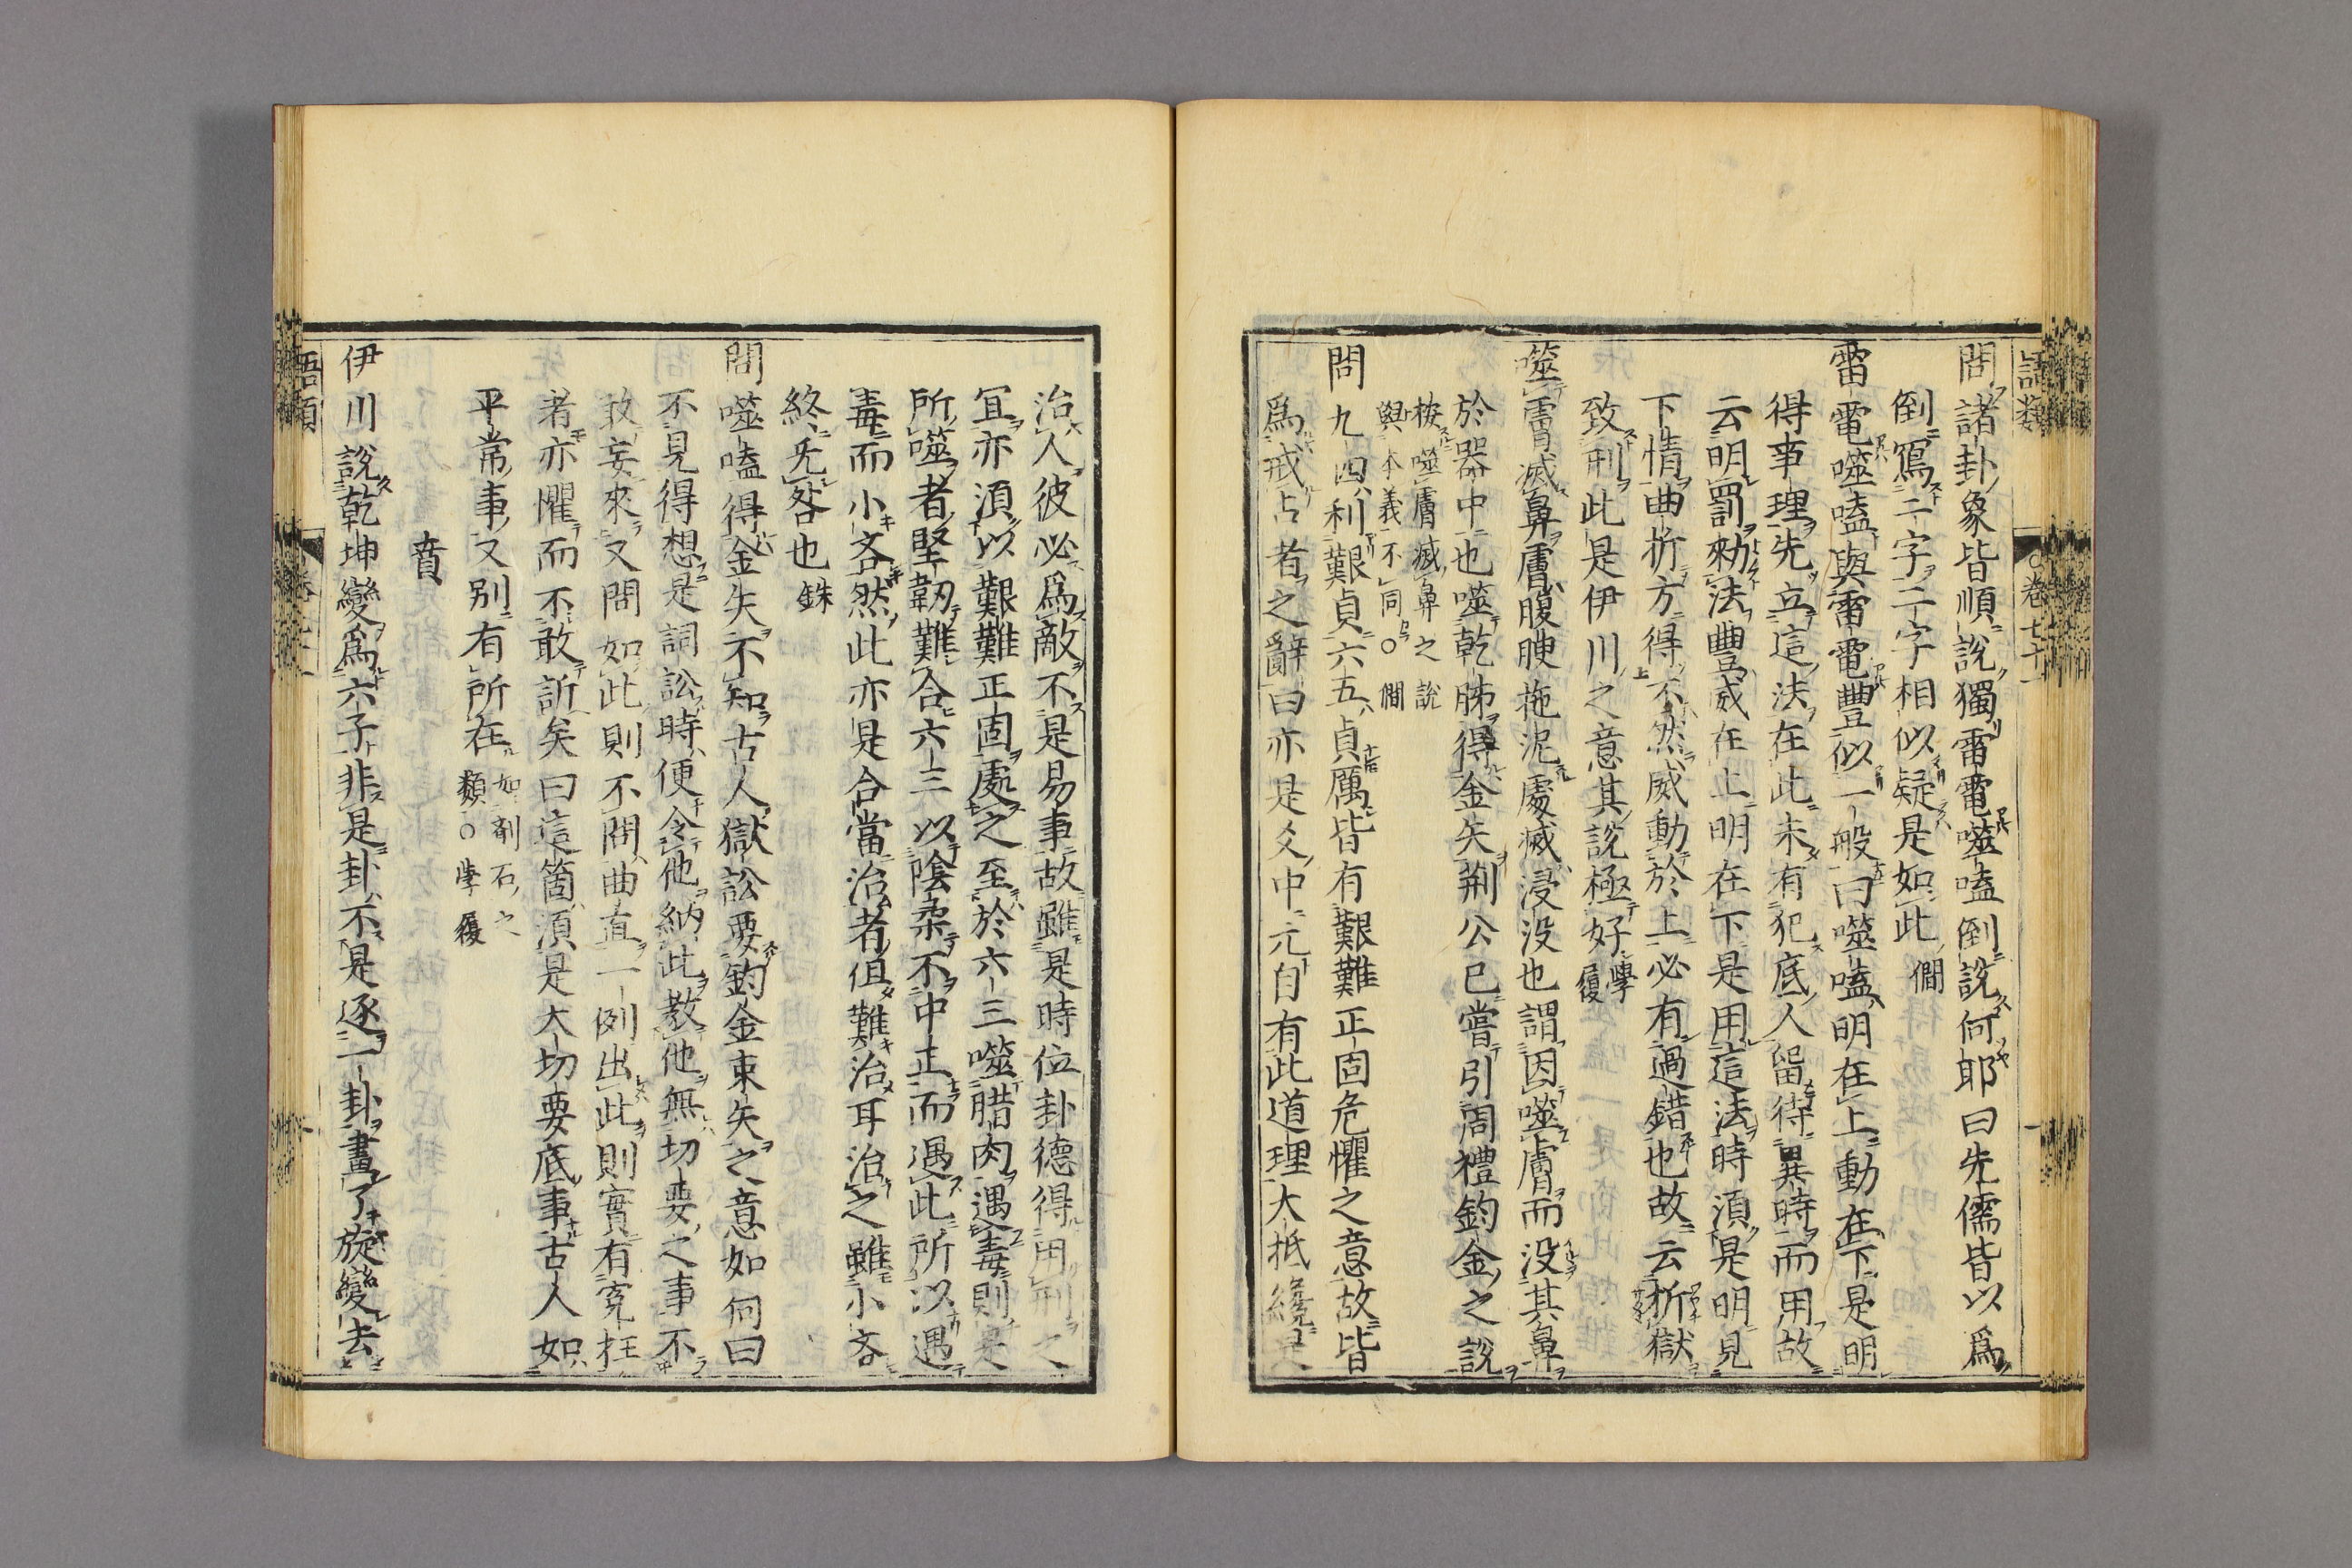 語類
卷七十一
問諸卦象皆順說獨雷電噬嗑倒說何耶曰先儒皆以爲
倒寫二字二字相似疑是如此 僩
雷電噬嗑與雷電豐似一般曰噬嗑明在上動在下是明
得事理先立這法在此未有犯底人留待異時而用故
云明罰勑法豐威在上明在下是用這法時須是明見
下情曲折方得不然威動於上必有過錯也故云折獄
致刑此是伊川之意其說極好 學履
噬膚滅鼻膚腹腴拖泥處滅浸没也謂因噬膚而没其鼻
於器中也噬乾胏得金矢荆公已嘗引周禮鈞金之說
按噬膚滅鼻之說
與本義不同○僩
問九四利艱貞六五貞厲皆有艱難正固危懼之意故皆
爲戒占者之辭曰亦是爻中元自有此道理大抵纔是
治人彼必爲敵不是易事故雖是時位卦德得用刑之
宜亦須以艱難正固處之至於六三噬腊肉遇毒則是
所噬者堅韌難合六三以陰柔不中正而遇此所以遇
毒而小吝然此亦是合當治者但難治耳治之雖小吝
終无咎也 銖
問噬嗑得金矢不知古人獄訟要鈞金束矢之意如何曰
不見得想是詞訟時便令他納此教他無切要之事不
敢妄來又問如此則不問曲直一例出此則實有寃枉
者亦懼而不敢訴矣曰這箇須是大切要底事古人如
平常事又别有所在 如剤石之
類○學履
賁
伊川說乾坤變爲六子非是卦不是逐一卦畫了旋變去
語類